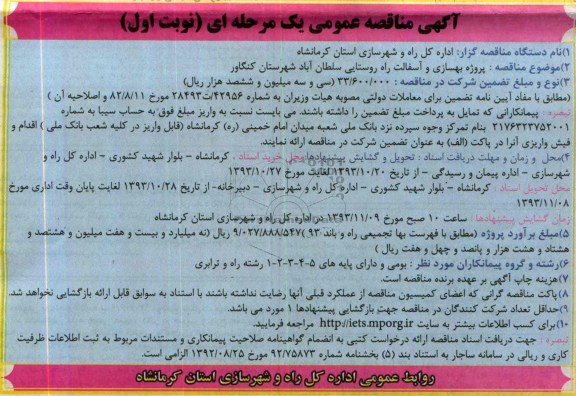 آگهی مناقصه عمومی یک مرحله ای (نوبت اول)
۱)نام دستگاه مناقصه گزار: اداره کل راه و شهرسازی استان کرمانشاه
۲)موضوع مناقصه : پروژه بهسازی و آسفالت راه روستایی سلطان آباد شهرستان کنگاور
۳)نوع و مبلغ تضمین شرکت در مناقصه : ۳۳/۶۰۰/۰۰۰ (سی و سه میلیون و ششصد هزار ریال)
(مطابق با مفاد آیین نامه تضمین برای معاملات دولتی مصوبه هیات وزیران به شماره ۴۲۹۵۶/ت۲۸۴۹۳ مورخ ۸۲/۸/۱۱ و اصلاحیه آن )
تبصره : پیمانکارانی که تمایل به پرداخت مبلغ تضمین را داشته باشند. می بایست نسبت به واریز مبلغ فوق به حساب سیبا به شماره
۲۱۷۶۳۲۳۷۵۲۰۰۱ بنام تمرکز وجوه سپرده نزد بانک ملی شعبه میدان امام خمینی (ره) کرمانشاه (قابل واریز در کلیه شعب بانک ملی ) اقدام و
فیش واریزی آنرا در پاکت (الف) به عنوان تضمین شرکت در مناقصه ارائه نمایند.
۴)محل و زمان و مهلت دریافت اسناد : تحویل و گشایش پیشنهادها:محل خرید اسناد : کرمانشاه - بلوار شهید کشوری - اداره کل راه و
شهرسازی - اداره پیمان و رسیدگی - از تاریخ ۱۳۹۳/۱۰/۲۰ لغایت مورخ ۱۳۹۳/۱۰/۲۷
محل تحویل اسناد : کرمانشاه - بلوار شهید کشوری - اداره کل راه و شهرسازی - دبیرخانه- از تاریخ ۱۳۹۳/۱۰/۲۸ لغایت پایان وقت اداری مورخ
۱۳۹۳/۱۱/۰۸
زمان گشایش پیشنهادها : ساعت ۱۰ صبح مورخ ۱۳۹۳/۱۱/۰۹ در اداره کل راه و شهرسازی استان کرمانشاه
۵)مبلغ برآورد پروژه (مطابق با فهرست بها تجمیعی راه و باند ۹۳) ۹/۰۲۷/۸۸۸/۵۴۷ ریال (نه میلیارد و بیست و هفت میلیون و هشتصد و
هشتاد و هشت هزار و پانصد و چهل و هفت ریال )
۶)رشته و گروه پیمانکاران مورد نظر : بومی و دارای پایه های ۵-۴-۳-۲-۱ رشته راه و ترابری
۷)هزینه چاپ آگهی بر عهده برنده مناقصه است.
۸)پاکت مناقصه گرانی که اعضای کمیسیون مناقصه از عملکرد قبلی آنها رضایت نداشته باشند با استناد به سوابق قابل ارائه بازگشایی نخواهد شد.
۹)حداقل تعداد شرکت کنندگان در مناقصه جهت بازگشایی پیشنهادها ۱ مورد می باشد.
۱۰)برای کسب اطلاعات بیشتر به سایت http://iets.mporg.ir مراجعه فرمایید.
تبصره : جهت دریافت اسناد مناقصه ارائه درخواست کتبی به انضمام گواهینامه صلاحیت پیمانکاری و مستندات مربوط به ثبت اطلاعات ظرفیت
کاری و ریالی در سامانه ساجار به استناد بند (۵) بخشنامه شماره ۹۲/۷۵۸۷۳ مورخ ۱۳۹۲/۰۸/۲۵ الزامی است.
روابط عمومی اداره کل راه و شهرسازی استان کرمانشاه